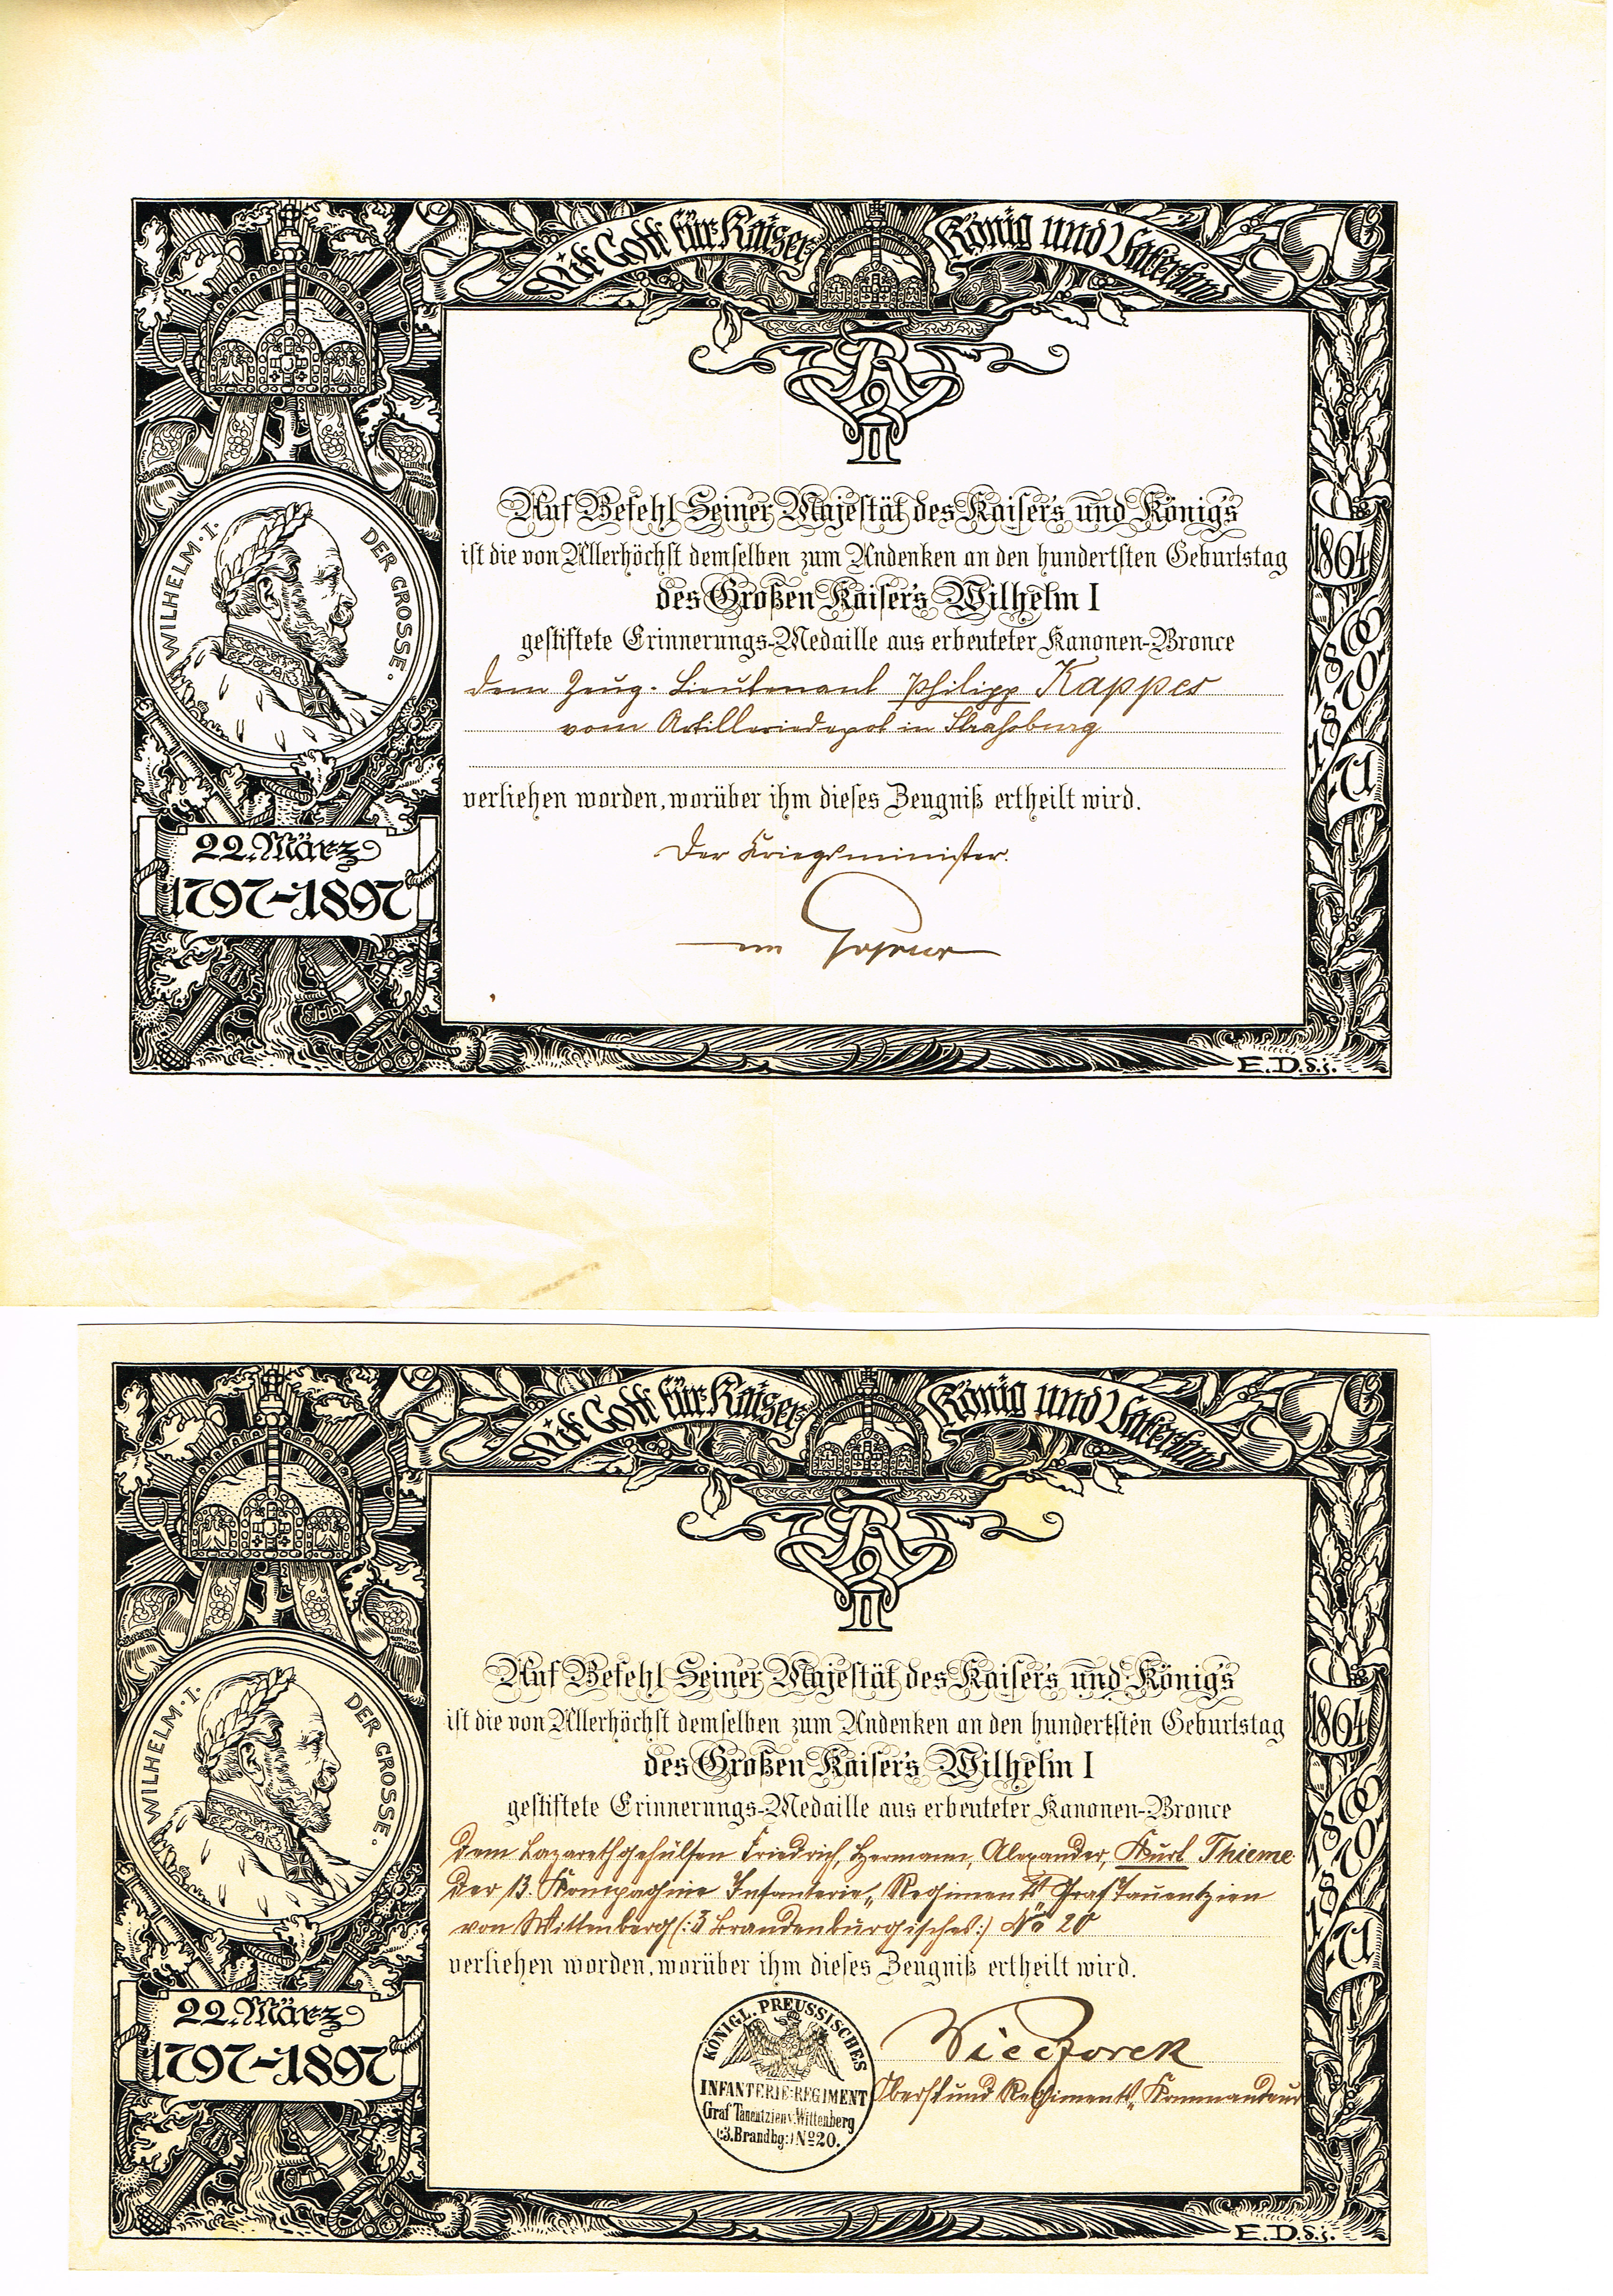 Mit Gott für Kaiser König und Vaterland
WILHELM · I · DER GROSSE ·
1864
1866
1870
71
Auf Befehl Seiner Majestät des Kaisers und Königs
ist die von Allerhöchst demselben zum Andenken an den hundertsten Geburtstag
des Großen Kaisers Wilhelm I
gestiftete Erinnerungs-Medaille aus erbeuteter Kanonen-Bronce
dem Zeug-Lieutenant Philipp Kappes
vom Artilleriedepot in Straßburg
verliehen worden, worüber ihm dieses Zeugniß ertheilt wird.
Der Kriegsminister.
22. März
1797-1897
E.D.d.j.
Mit Gott für Kaiser König und Vaterland
WILHELM · I · DER GROSSE ·
1864
1866
1870
71
Auf Befehl Seiner Majestät des Kaisers und Königs
ist die von Allerhöchst demselben zum Andenken an den hundertsten Geburtstag
des Großen Kaisers Wilhelm I
gestiftete Erinnerungs-Medaille aus erbeuteter Kanonen-Bronce
dem Lazarethgehülfen Friedrich, Hermann, Alexander, Kurt Thieme
der 13. Kompagnie Infanterie-Regiments Graf Tauentzien
von Wittenberg (:3 Brandenburgisches:) No 20
verliehen worden, worüber ihm dieses Zeugniß ertheilt wird.
KÖNIGL. PREUSSISCHES
INFANTERIE-REGIMENT
Graf Tauentzien v. Wittenberg
(:3. Brandbg:) No 20.
Wieczorek
Oberst und Regiments-Kommandeur
22. März
1797-1897
E.D.d.j.